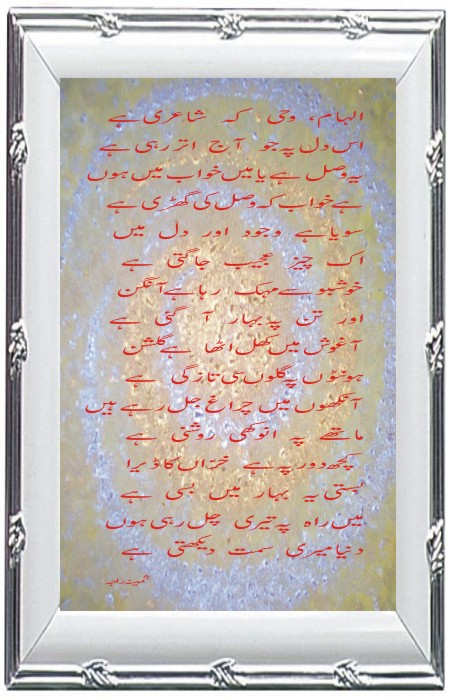 الہام، وحی کہ شاعری ہے
اس دل پہ جو آج اتر رہی ہے
یہ وصل ہے یا میں خواب میں ہوں
ہے خواب کہ وصل کی گھڑی ہے
سویا ہے وجود اور دل میں
اک چیز عجیب جاگتی ہے
خوشبو سے مہک رہا ہے آنگن
اور تن پہ بہار آ گئی ہے
آغوش میں کھل اٹھا ہے گلشن
ہونٹوں پہ گلوں سی تازگی ہے
آنکھوں میں چراغ جل رہے ہیں
ماتھے پہ انوکھی روشنی ہے
کچھ دور پہ ہے خزاں کا ڈیرا
بستی یہ بہار میں بسی ہے
میں راہ پہ تیری چل رہی ہوں
دنیا میری سمت دیکھتی ہے
ثمینہ راجہ